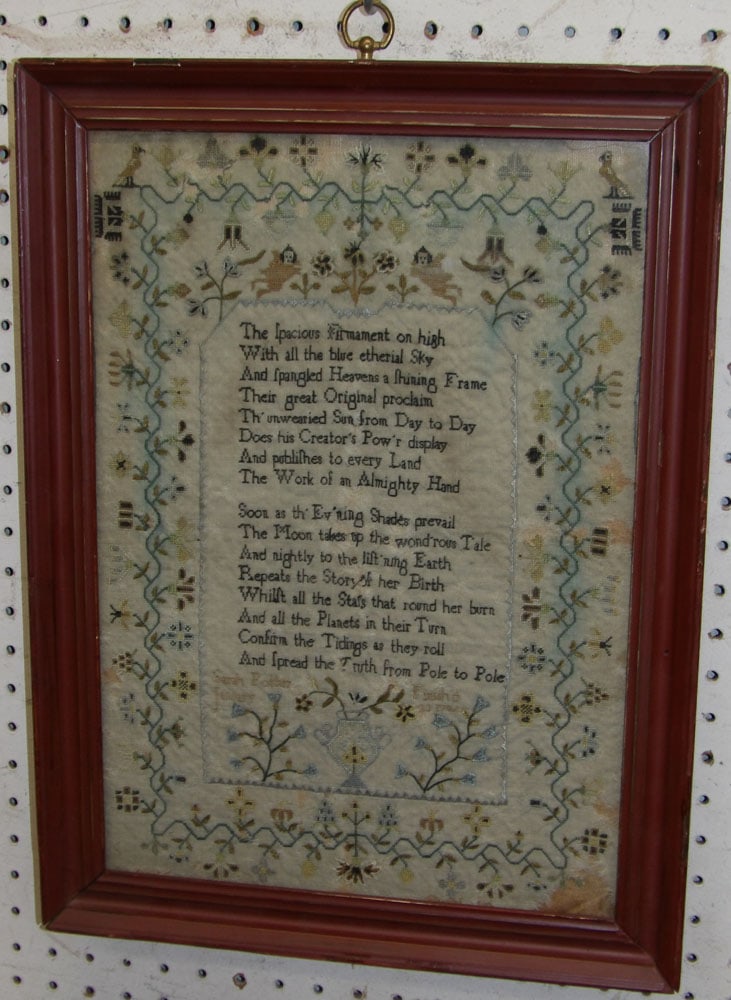 The ſpacious Firmament on high
With all the blue etherial Sky
And ſpangled Heavens a ſhining Frame
Their great Original proclaim
Th' unwearied Sun from Day to Day
Does his Creator's Pow'r display
And publiſhes to every Land
The Work of an Almighty Hand
Soon as th' Ev'ning Shades prevail
The Moon takes up the wond'rous Tale
And nightly to the liſt'ning Earth
Repeats the Story of her Birth
Whilſt all the Stars that round her burn
And all the Planets in their Turn
Confirm the Tidings as they roll
And ſpread the Truth from Pole to Pole
Sarah